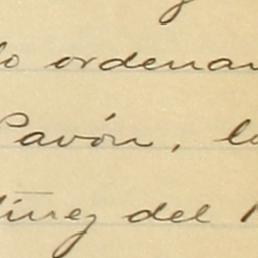 lo ordenan
Pavón, la
tínez del